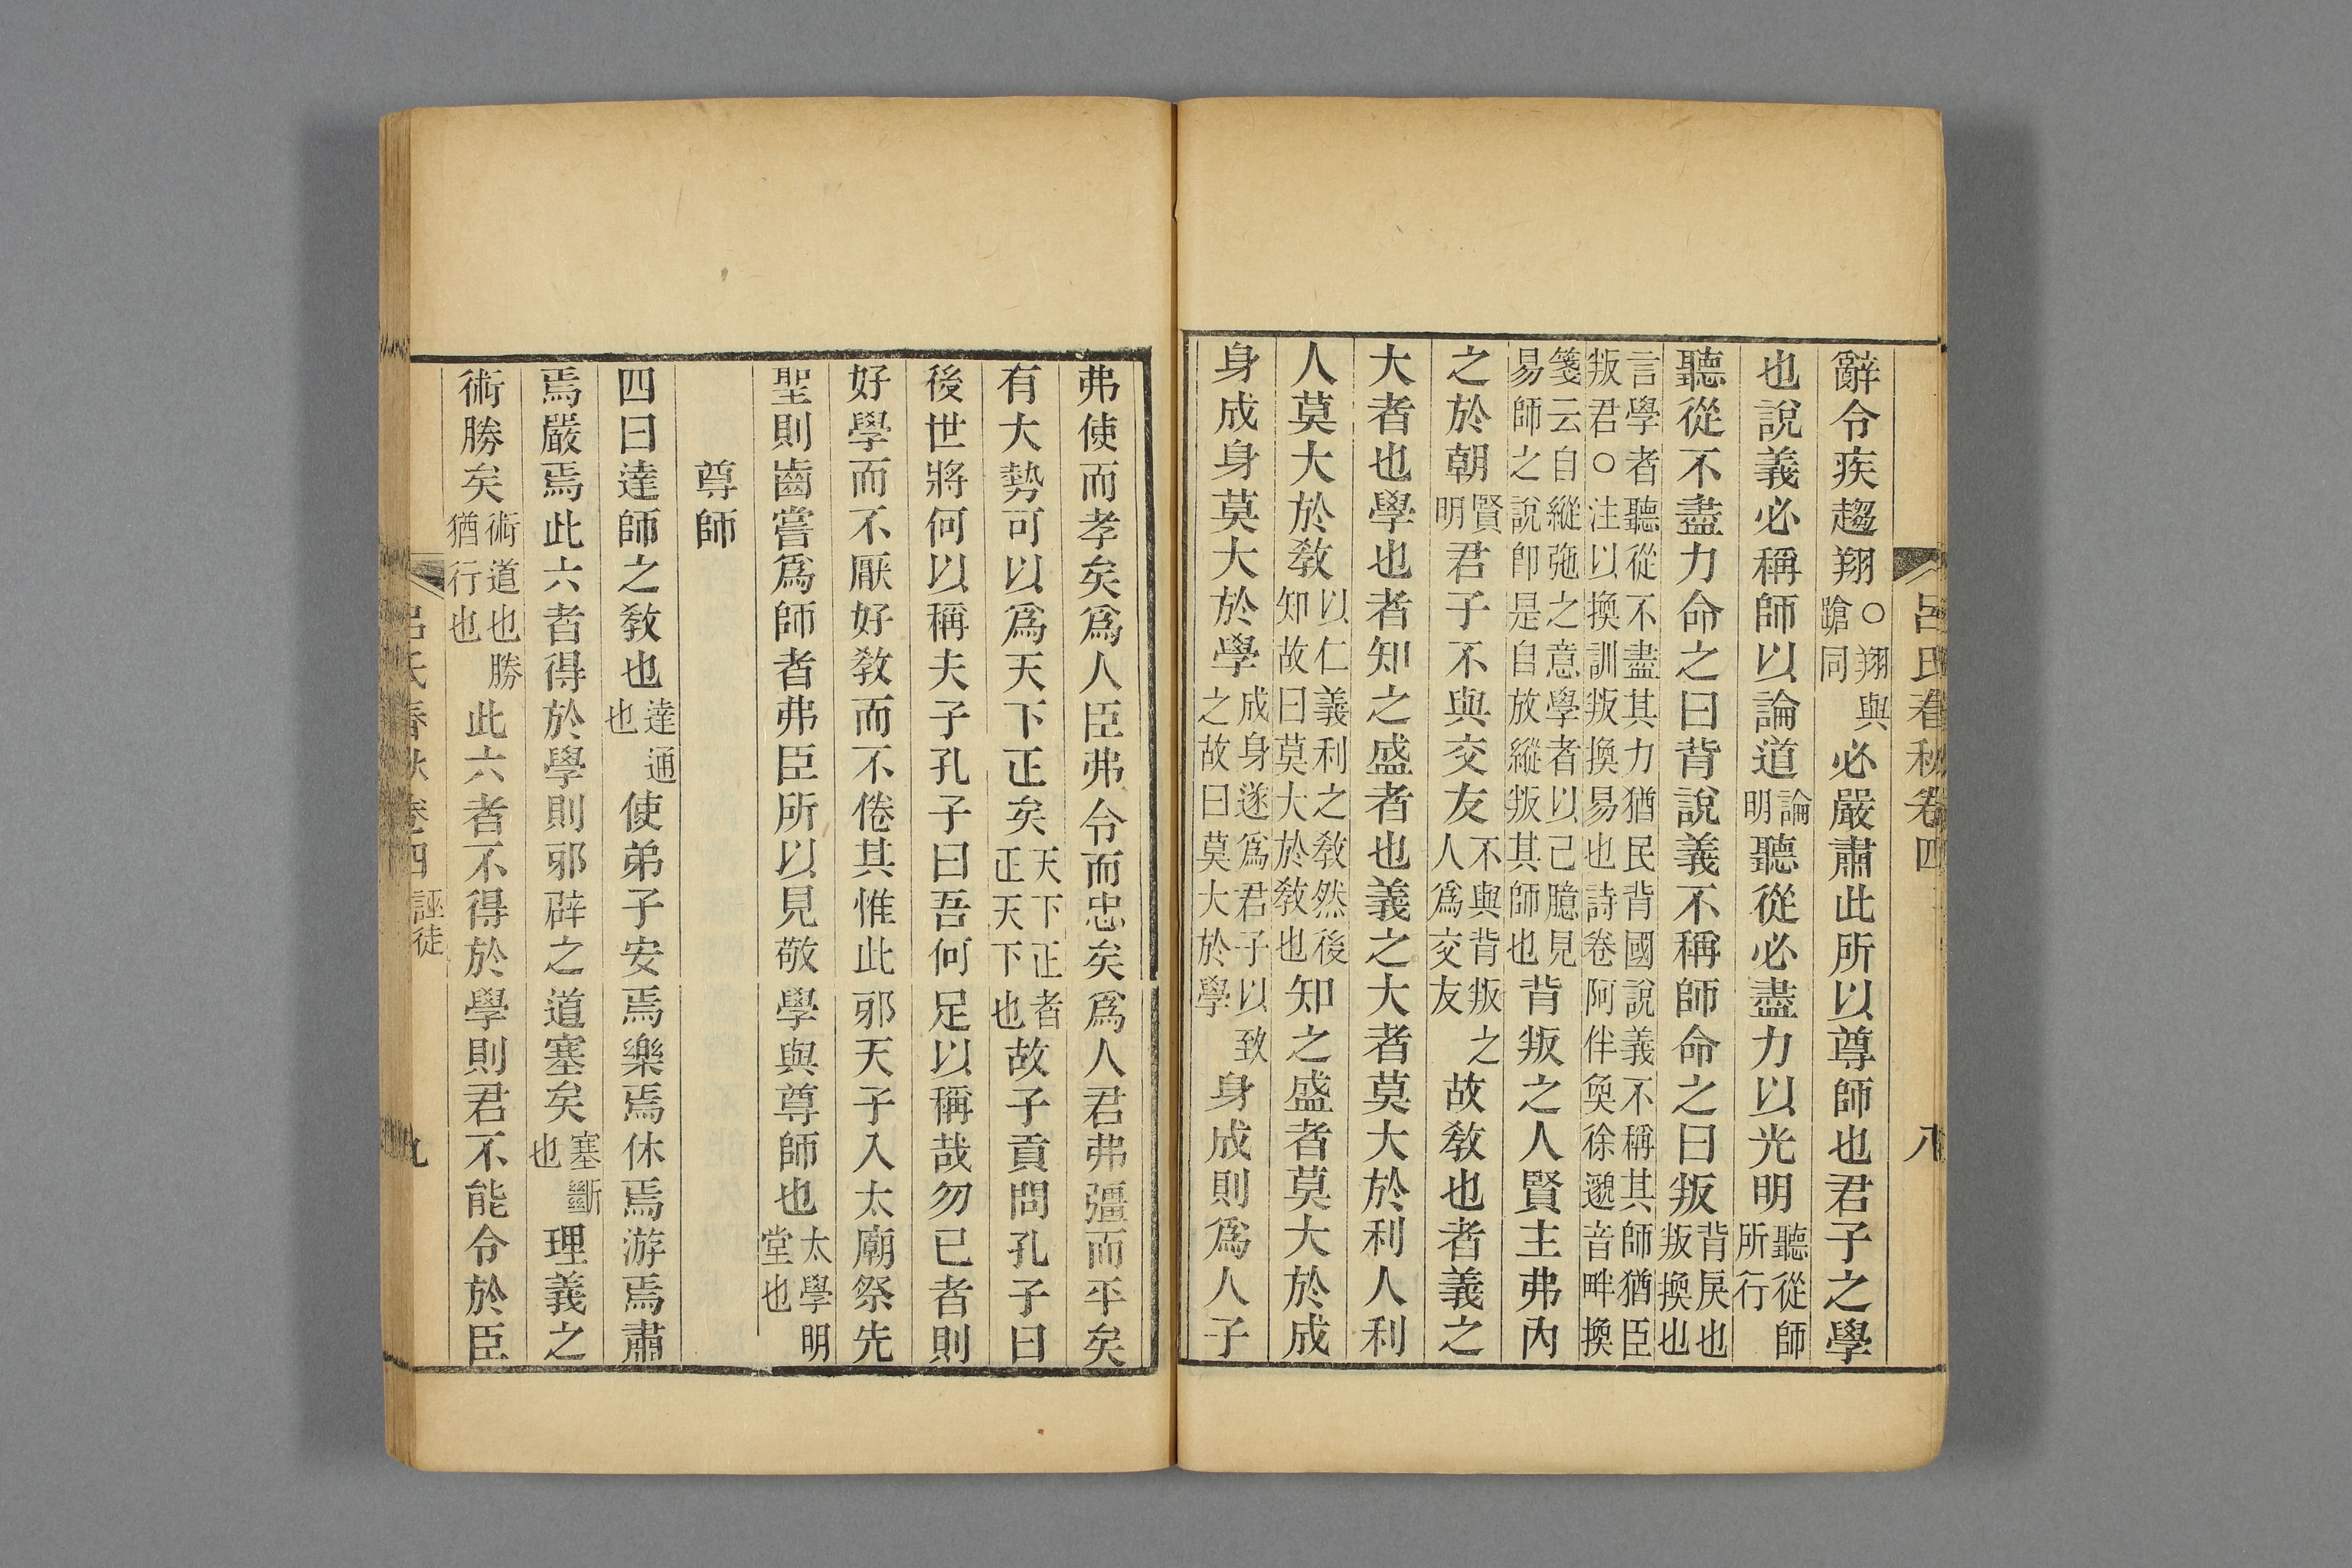 呂氏春秋卷四 八
辭令疾趨翔○翔與蹌同必嚴肅此所以尊師也君子之學
也說義必稱師以論道論明聽從必盡力以光明聽從師所行
聽從不盡力命之曰背說義不稱師命之曰叛背戾也叛換也
言學者聽從不盡其力猶民背國說義不稱其師猶臣
叛君○注以換訓叛換易也詩卷阿伴奐徐邈音畔換
箋云自縱弛之意學者以己臆見易師之說卽是自放縱叛其師也背叛之人賢主弗內
之於朝賢明君子不與交友不與背叛之人爲交友故敎也者義之
大者也學也者知之盛者也義之大者莫大於利人利
人莫大於敎以仁義利之敎然後知故曰莫大於敎也知之盛者莫大於成
身成身莫大於學成身遂爲君子以致之故曰莫大於學身成則爲人子
弗使而孝矣爲人臣弗令而忠矣爲人君弗彊而平矣
有大勢可以爲天下正矣天下正者正天下也故子貢問孔子曰
後世將何以稱夫子孔子曰吾何足以稱哉勿已者則
好學而不厭好敎而不倦其惟此邪天子入太廟祭先
聖則齒嘗爲師者弗臣所以見敬學與尊師也太學明堂也
尊師
四曰達師之敎也達通也使弟子安焉樂焉休焉游焉肅
焉嚴焉此六者得於學則邪辟之道塞矣塞斷也理義之
術勝矣術道也勝猶行也此六者不得於學則君不能令於臣
呂氏春秋卷四 誣徒 九